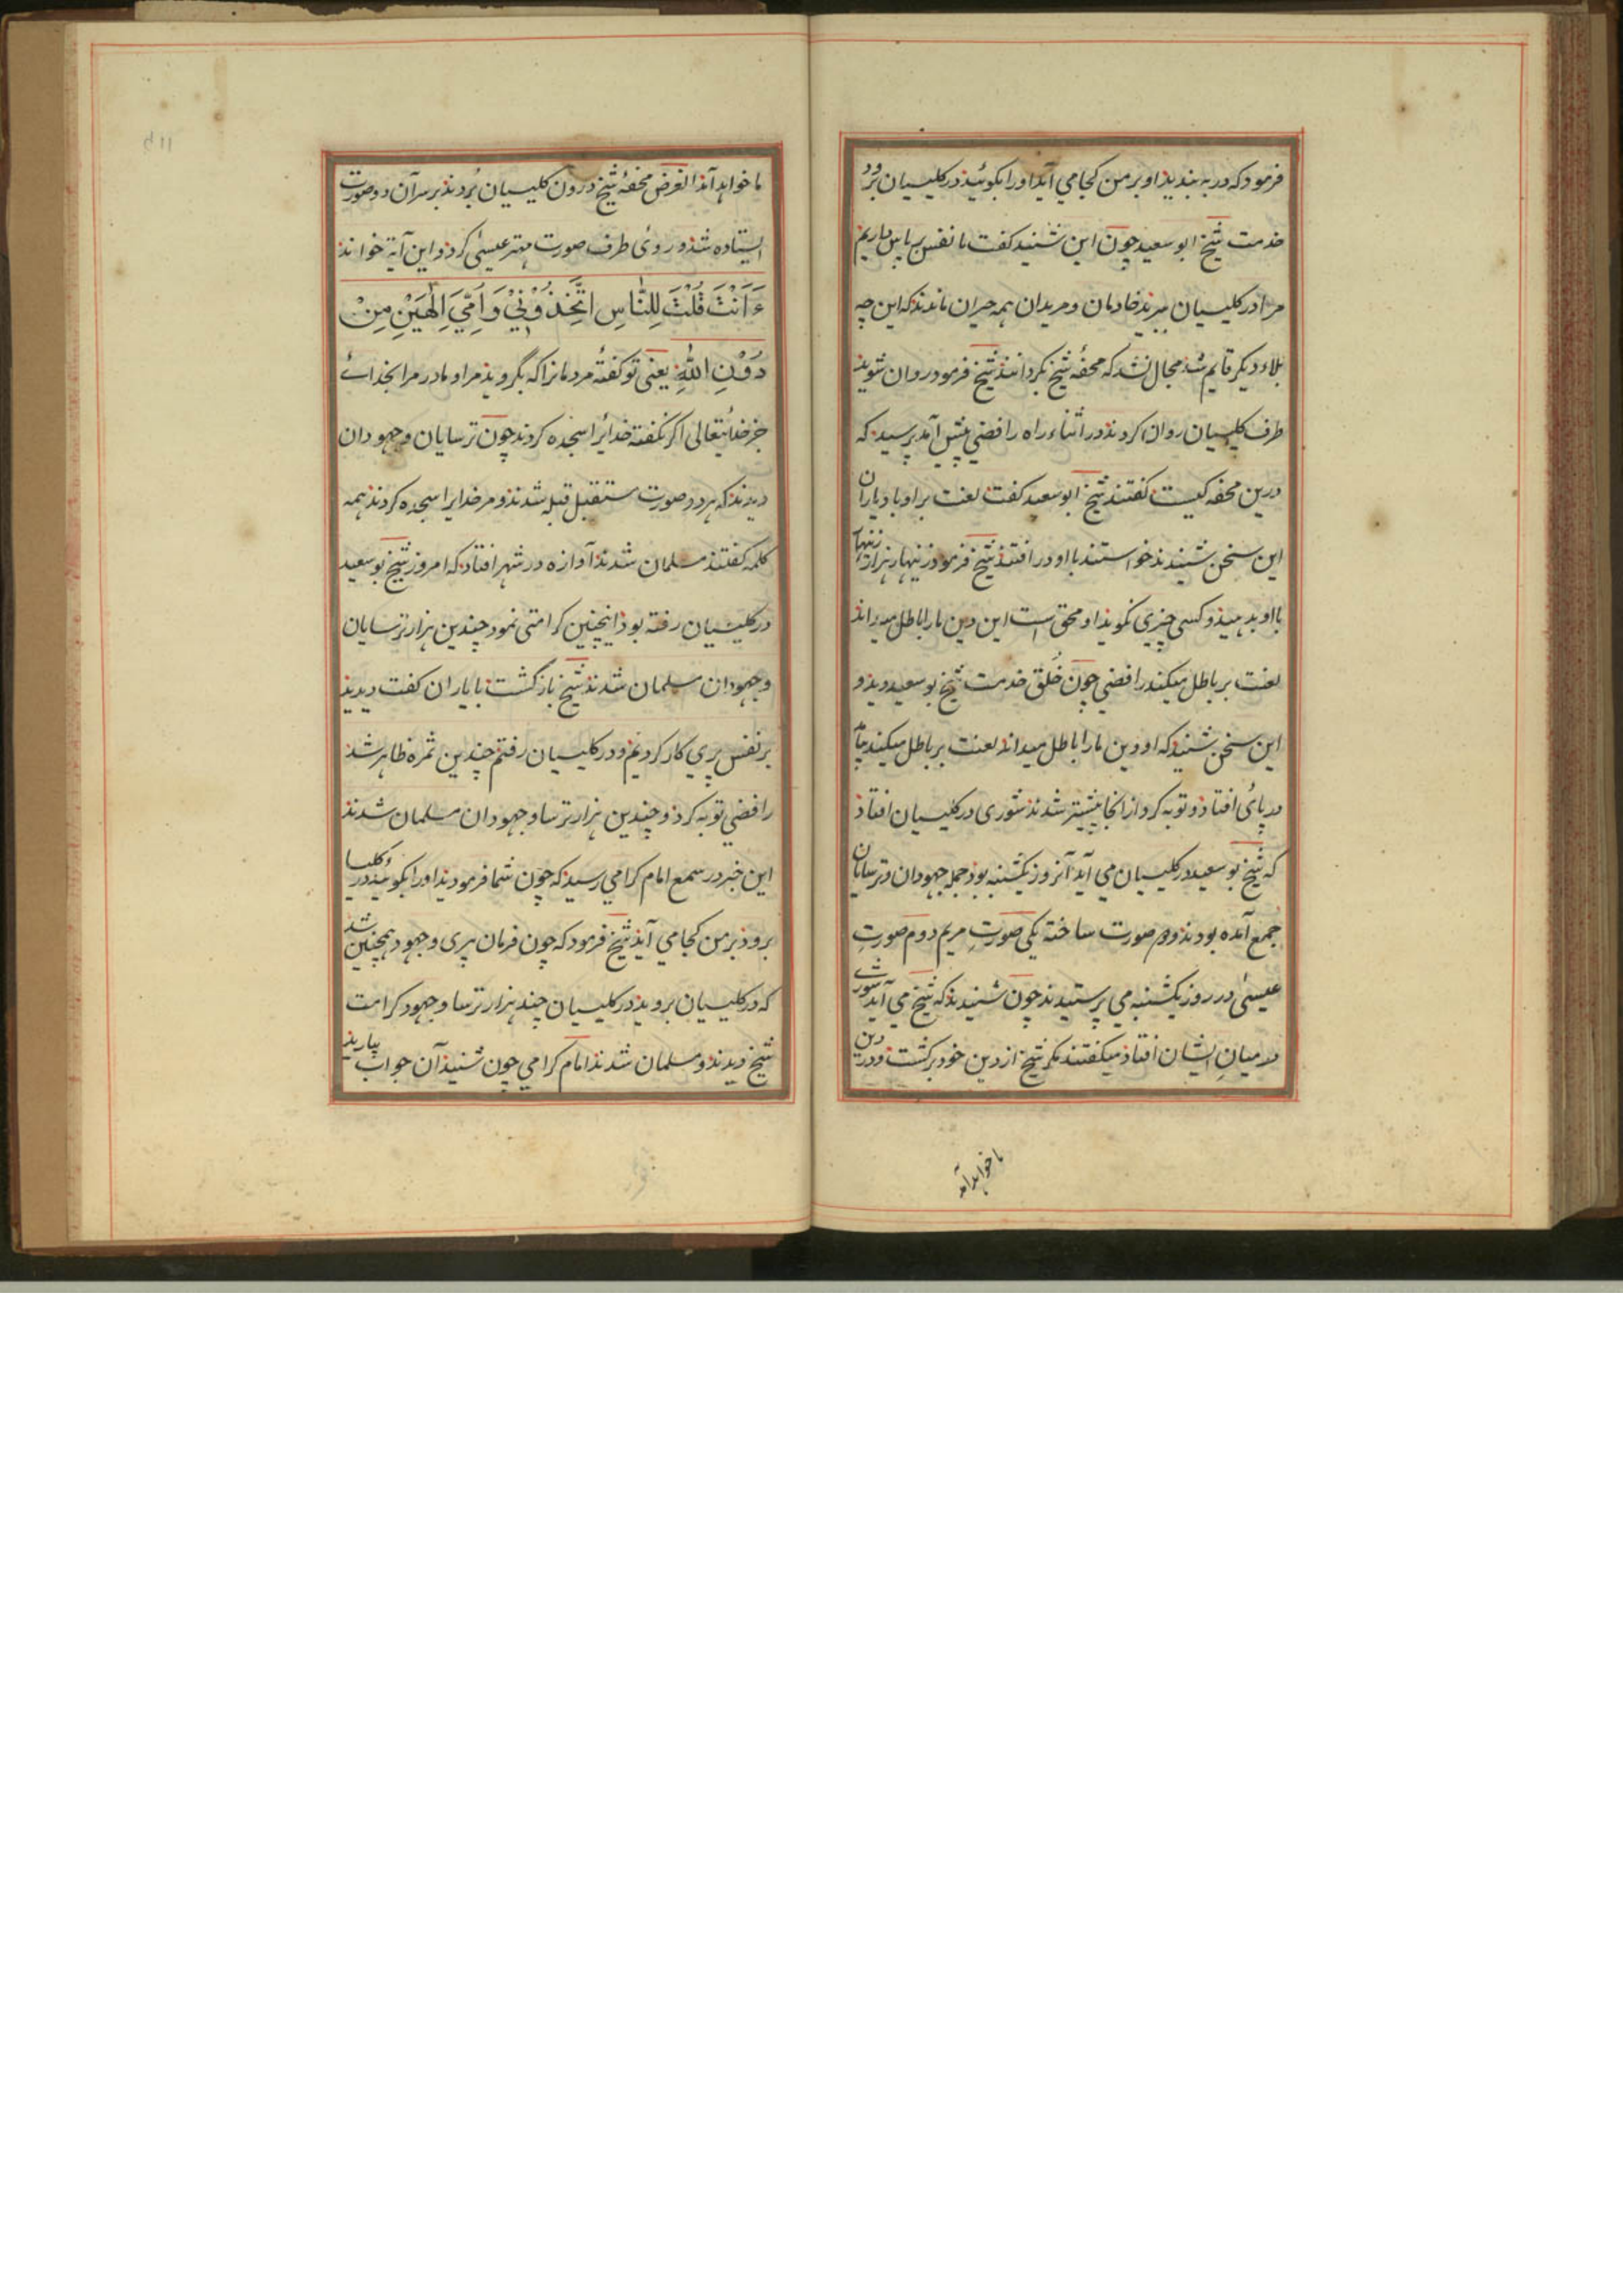 فرمود که در به بندید او بر من کجا می آید او را بکوئید در کلیسیان برود
خدمت شیخ ابو سعید چون این شنید کفت ما نفس پیر پاس داریم
مرا در کلیسیان ببرند خادمان و مریدان همه حیران ماندند که این چه
بلاء دیکر قایم شد مجال نشد که محفهٔ شیخ بکردانند شیخ فرمود روان شوید
طرف کلیسیان روان کردند در اثناء راه رافضی پیش آمد پرسید که
درین محفه کیست کفتند شیخ ابو سعید کفت لعنت بر او باد یاران
این سخن شنیدند خواستند با او در افتند شیخ فرمود زنهار هزار زنهار
با او بد مبیند و کسی چیزی نکوید او محق است این دین ما را باطل میداند
لعنت بر باطل میکند رافضی چون خُلق خدمت شیخ بو سعید دید و
این سخن شنید که او دین ما را باطل میداند لعنت بر باطل میکند بیامد
در پائ افتاد و توبه کرد از انجا پیشتر شدند شوری در کلیسیان افتاد
که شیخ بو سعید در کلیسیان می آید آنروز یکشنبه بود جمله جهودان و ترسایان
جمع آمده بودند دو صورت ساخته یکی صورتِ مریم دوم صورتِ
عیسیٰ در روز یکشنبه می پرستیدند چون شنیدند که شیخ می آید شورے
در میانِ ایشان افتاد میکفتند مکر شیخ از دین خود برکشت و در دین
ما خواهد آمد
ما خواهد آمد الغرض محفهٔ شیخ درون کلیسیان بُردند بر سر آن دو صورت
ایستاده شد و روئ طرف صورت مهتر عیسیٰ کرد و این آیة خواند
ءَاَنْتَ قُلْتَ لِلنَّاسِ اتَّخِذُوْنِيْ وَاُمِّيَ اِلٰهَيْنِ مِنْ
دُوْنِ اللّٰهِ یعنی تو کفتهٔ مردمانرا که بگروید مرا و مادر مرا بخدائے
جز خدائتعالی اکر نکفته خدائرا سجده کردند چون ترسایان و جهودان
دیدند که هر دو صورت مستقبل قبله شدند و مر خدایرا سجده کردند همه
کلمه کفتند مسلمان شدند آوازه در شهر افتاد که امروز شیخ بو سعید
در کلیسیان رفته بود اینچنین کرامتی نمود چندین هزار ترسایان
و جهودان مسلمان شدند شیخ باز کشت با یاران کفت دیدید
بر نفس پیری کار کردیم و در کلیسیان رفتم چندین ثمره ظاهر شد
رافضی توبه کرد و چندین هزار ترسا و جهودان مسلمان شدند
این خبر در سمع امام کرامی رسید که چون شما فرمودید او را بکوئید در کلیسیا
برود بر من کجا می آید شیخ فرمود که چون فرمان پیری وجهود همچنین شد
که در کلیسیان بروید در کلیسیان چند هزار ترسا و جهود کرامت
شیخ دیدند و مسلمان شدند امام کرامی چون شنید آن جواب بیارید